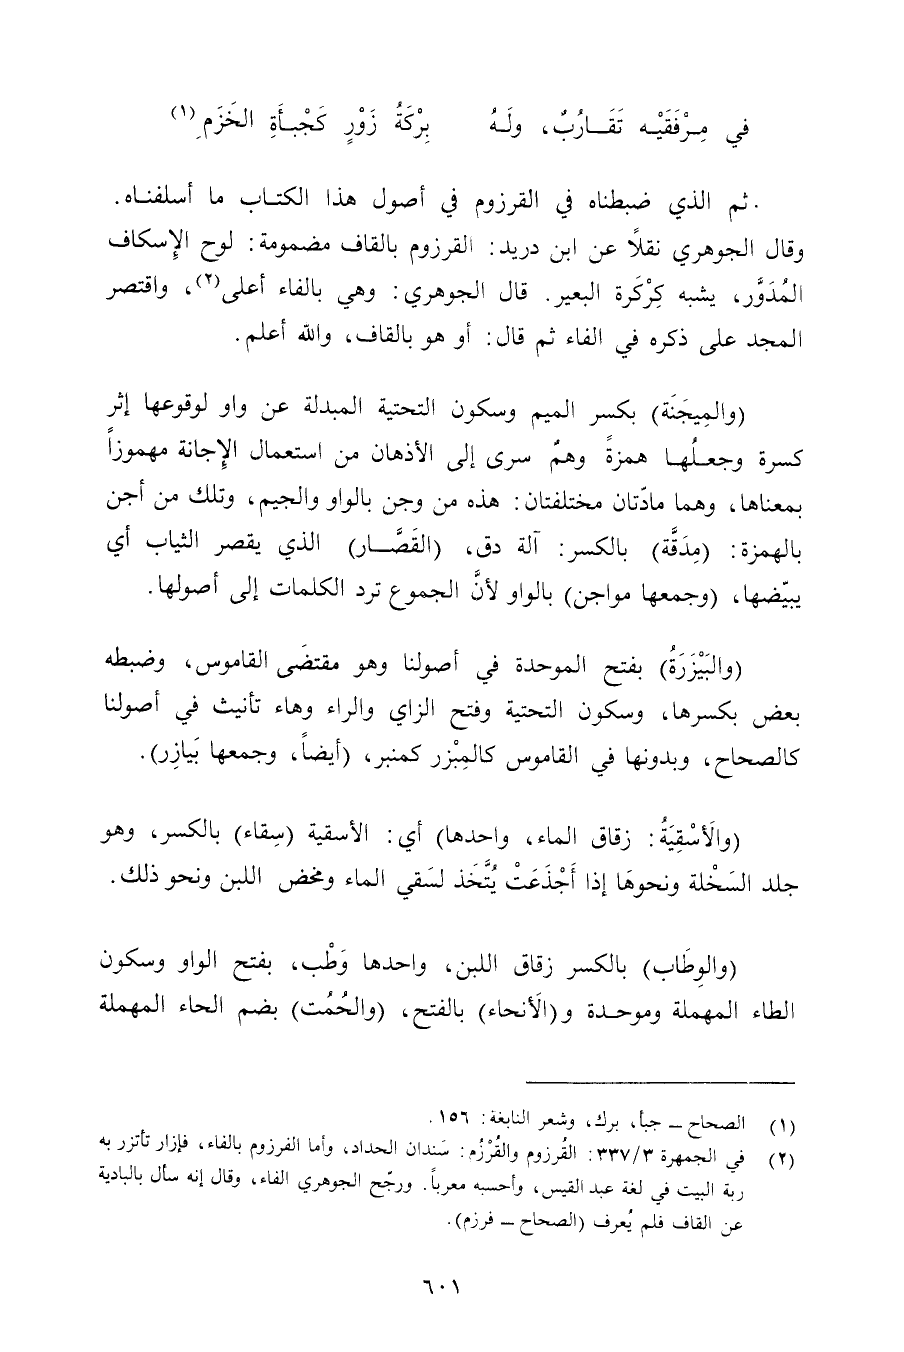 في مِـرْفَقَيْـه تَقَــارُبٌ، ولَـهُ بِرْكَةُ زَوْرٍ كَجْبـأَةِ الخَزَمِ(١)
. ثم الذي ضبطناه في القرزوم في أصول هذا الكتـاب ما أسلفنـاه.
وقال الجوهري نقلاً عن ابن دريد: القرزوم بالقاف مضمومة: لوح الإِسكاف
المُدَوَّر، يشبه كِرْكَرة البعير. قال الجوهري: وهي بالفاء أعلى(٢)، واقتصر
المجد على ذكره في الفاء ثم قال: أو هو بالقاف، والله أعلم.
(والمِيجَنَة) بكسر الميم وسكون التحتية المبدلة عن واو لوقوعها إثر
كسرة وجعـلُهـا همزةً وهمٌ سرى إلى الأذهان من استعمال الإِجانة مهموزاً
بمعناها، وهما مادّتان مختلفتان: هذه من وجن بالواو والجيم، وتلك من أجن
بالهمزة: (مِدَقَّة) بالكسر: آلة دق، (القَصَّــار) الذي يقصر الثياب أي
يبيّضها، (وجمعها مواجن) بالواو لأنَّ الجموع ترد الكلمات إلى أصولها.
(والبَيْزَرَةُ) بفتح الموحدة في أصولنا وهو مقتضَى القاموس، وضبطه
بعض بكسرها، وسكون التحتية وفتح الزاي والراء وهاء تأنيث في أصولنا
كالصحاح، وبدونها في القاموس كالمِبْزر كمنبر، (أيضاً، وجمعها بَيازِر).
(والَأسْقِيَةُ: زقاق الماء، واحدها) أي: الأسقية (سِقاء) بالكسر، وهو
جلد السَخْلة ونحوهَا إذا أَجْذَعَتْ يُتَّخَذ لسَقي الماء ومخض اللبن ونحو ذلك.
(والوِطَاب) بالكسر زقاق اللبن، واحدها وَطْب، بفتح الواو وسكون
الطاء المهملة وموحـدة و(الَأنحاء) بالفتح، (والحُمُت) بضم الحاء المهملة
(١) الصحاح ــ جبأ، برك، وشعر النابغة: ١٥٦.
(٢) في الجمهرة ٣/٣٣٧: القُرزوم والقُرْزُم: سَندان الحداد، وأما الفرزوم بالفاء، فإزار تأتزر به
ربة البيت في لغة عبد القيس، وأحسبه معرباً. ورجّح الجوهري الفاء، وقال إنه سأل بالبادية
عن القاف فلم يُعرف (الصحاح ــ فرزم).
٦٠١